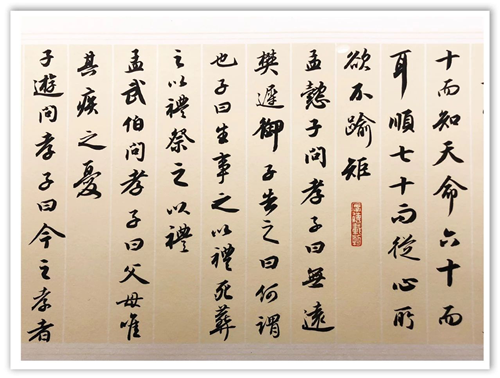 十而知天命六十而
耳順七十而從心所
欲不踰矩
孟懿子問孝子曰無違
樊遲御子告之曰何謂
也子曰生事之以禮死葬
之以禮祭之以禮
孟武伯問孝子曰父母唯
其疾之憂
子遊問孝子曰今之孝者